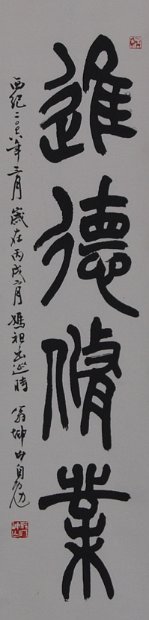 進德脩業
西紀二〇〇六年二月歲在丙戌二月媽祖出巡時翁坤山自勉